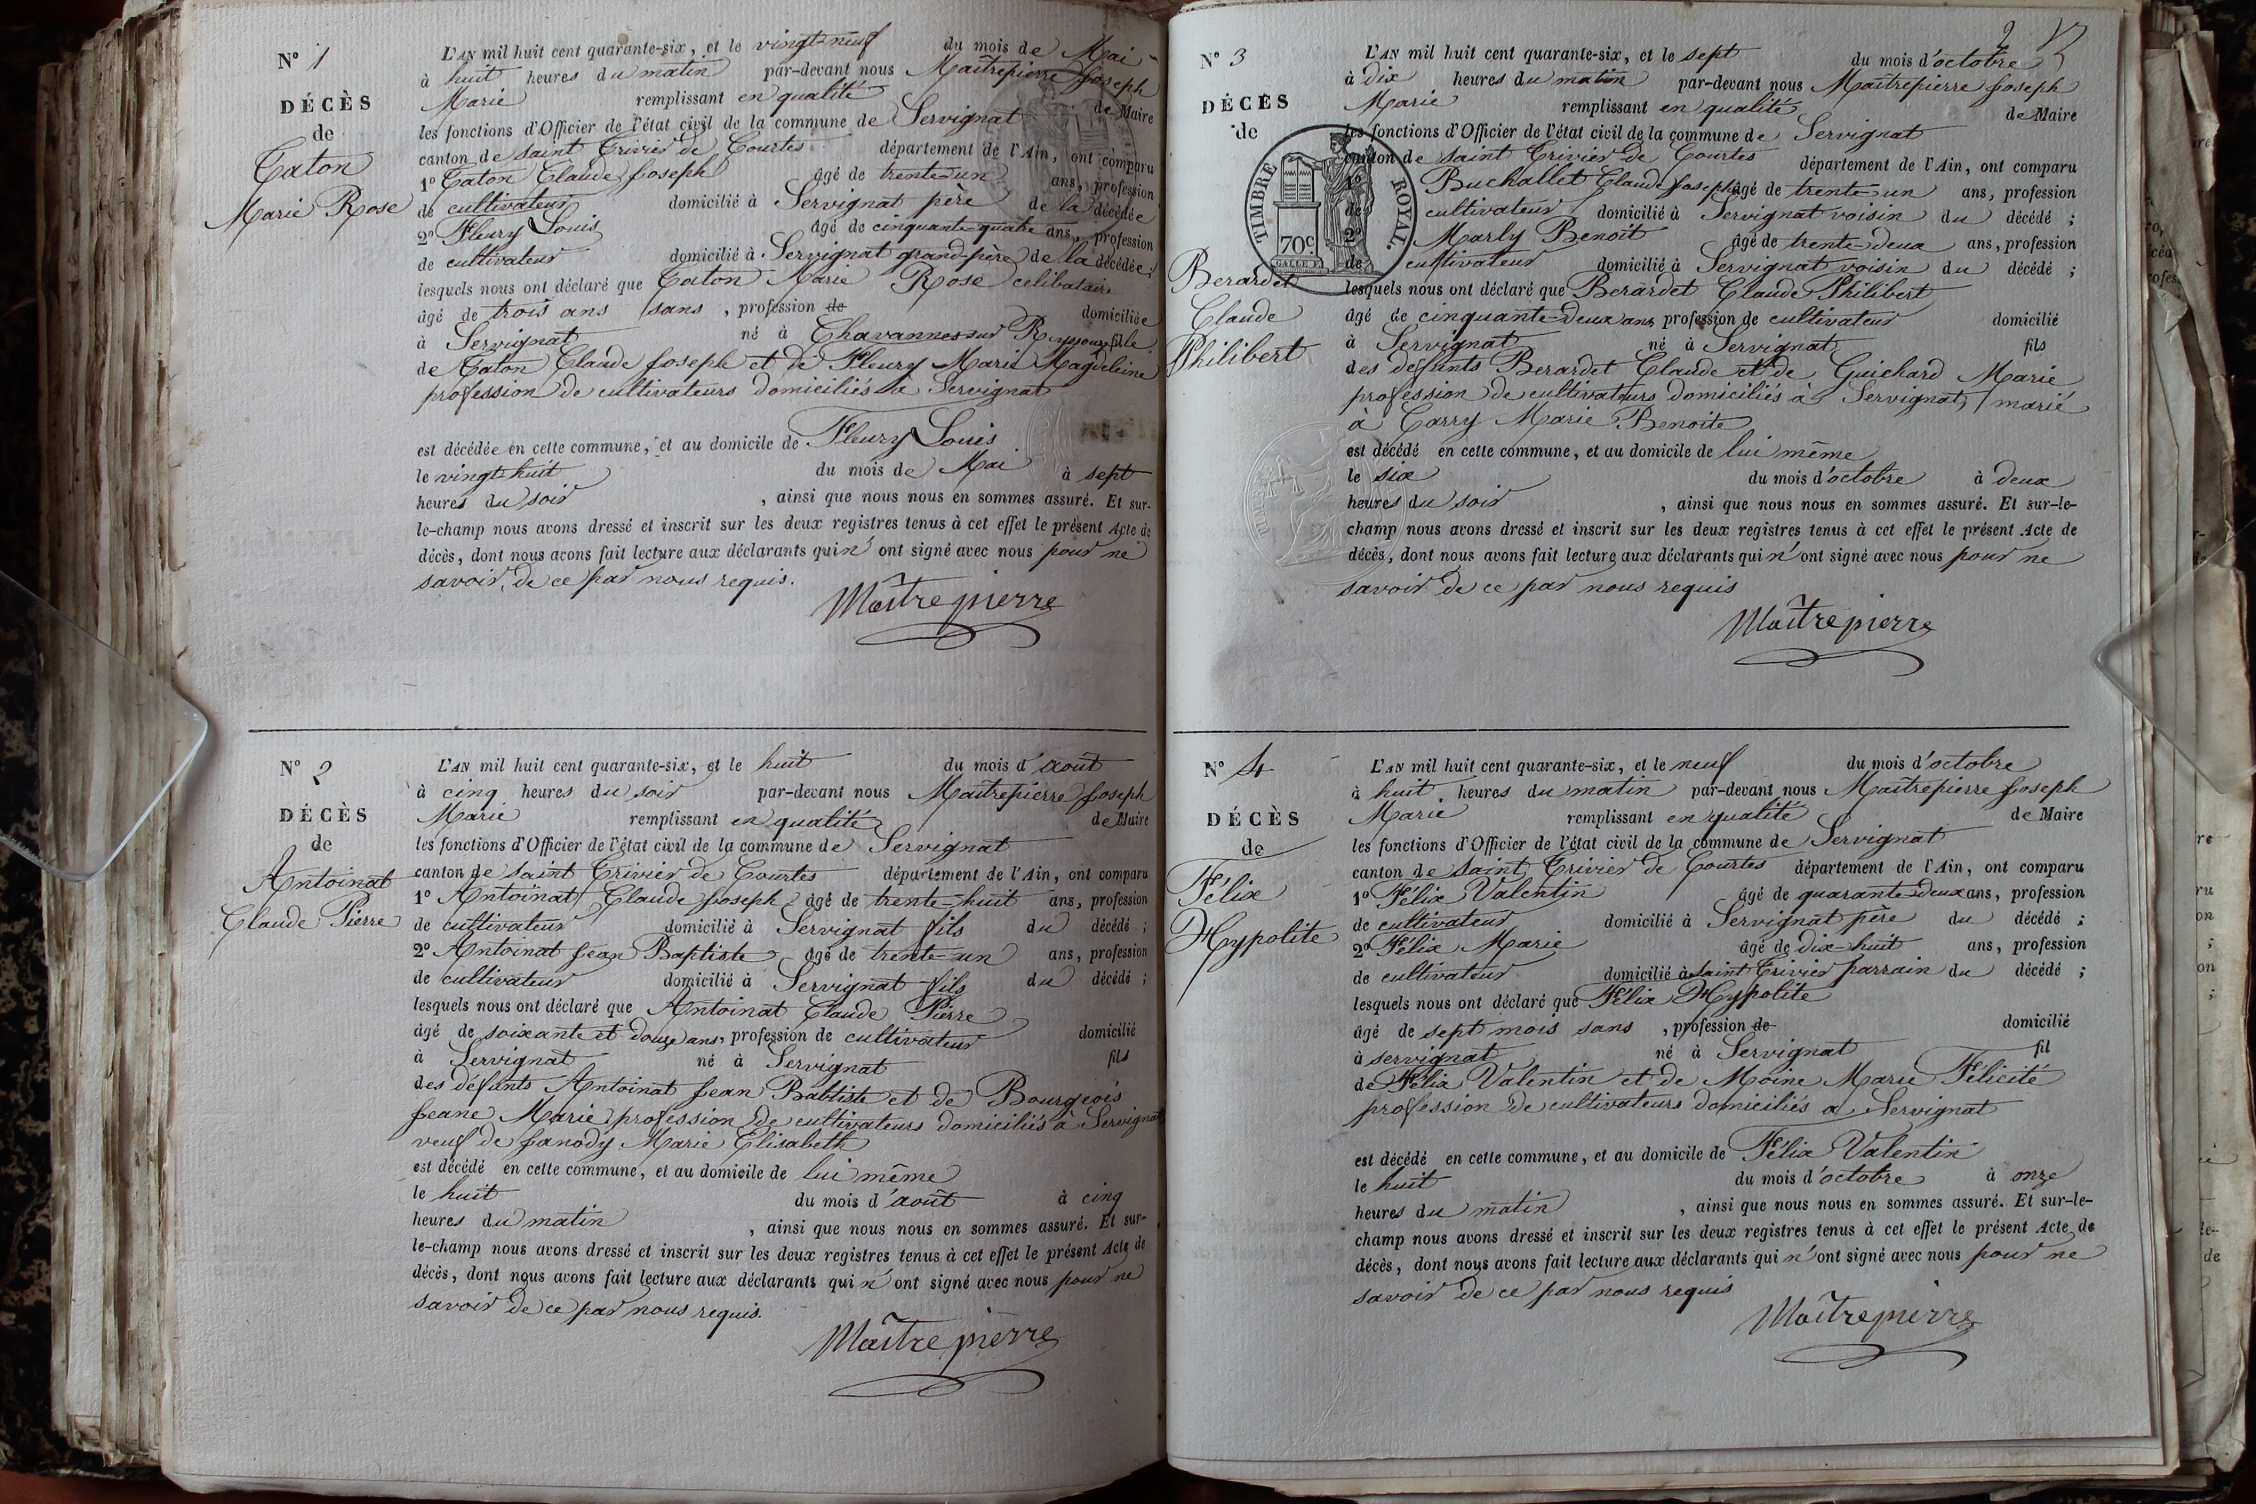 N° 1
DÉCÈS
de
Caton
Marie Rose
L'AN mil huit cent quarante-six, et le vingt-neuf du mois de Mai
à huit heures du matin par-devant nous Maîtrepierre Joseph
Marie remplissant en qualité de Maire
les fonctions d'Officier de l'état civil de la commune de Servignat
canton de saint Trivier de Courtes département de l'Ain, ont comparu
1° Caton Claude Joseph âgé de trente-un ans, profession
de cultivateur domicilié à Servignat père de la décédée
2° Fleury Louis âgé de cinquante-quatre ans, profession
de cultivateur domicilié à Servignat grand-père de la décédée;
lesquels nous ont déclaré que Caton Marie Rose célibataire
âgé de trois ans sans, profession de domiciliée
à Servignat né à Chavannes sur Reyssouze fille
de Caton Claude Joseph et de Fleury Marie Magdeleine
profession de cultivateurs domiciliés à Servignat
est décédée en cette commune, et au domicile de Fleury Louis
le vingt-huit du mois de Mai à sept
heures du soir, ainsi que nous nous en sommes assuré. Et sur-
le-champ nous avons dressé et inscrit sur les deux registres tenus à cet effet le présent Acte de
décès, dont nous avons fait lecture aux déclarants qui n'ont signé avec nous pour ne
savoir de ce par nous requis.
Maîtrepierre
N° 2
DÉCÈS
de
Antoinat
Claude Pierre
L'AN mil huit cent quarante-six, et le huit du mois d'août
à cinq heures du soir par-devant nous Maîtrepierre Joseph
Marie remplissant en qualité de Maire
les fonctions d'Officier de l'état civil de la commune de Servignat
canton de saint Trivier de Courtes département de l'Ain, ont comparu
1° Antoinat Claude Joseph âgé de trente-huit ans, profession
de cultivateur domicilié à Servignat fils du décédé;
2° Antoinat Jean Baptiste âgé de trente-un ans, profession
de cultivateur domicilié à Servignat fils du décédé;
lesquels nous ont déclaré que Antoinat Claude Pierre
âgé de soixante et douze ans, profession de cultivateur domicilié
à Servignat né à Servignat fils
des défunts Antoinat Jean Babtiste et de Bourgeois
Jeane Marie profession de cultivateurs domiciliés à Servignat
veuf de Janody Marie Elisabeth
est décédé en cette commune, et au domicile de lui même
le huit du mois d'août à cinq
heures du matin, ainsi que nous nous en sommes assuré. Et sur-
le-champ nous avons dressé et inscrit sur les deux registres tenus à cet effet le présent Acte de
décès, dont nous avons fait lecture aux déclarants qui n'ont signé avec nous pour ne
savoir de ce par nous requis.
Maîtrepierre
2
N° 3
DÉCÈS
de
Berardet
Claude
Philibert
TIMBRE ROYAL.
70c.
L'AN mil huit cent quarante-six, et le sept du mois d'octobre
à dix heures du matin par-devant nous Maîtrepierre Joseph
Marie remplissant en qualité de Maire
les fonctions d'Officier de l'état civil de la commune de Servignat
canton de saint Trivier de Courtes département de l'Ain, ont comparu
1° Buchallet Claude Joseph âgé de trente-un ans, profession
de cultivateur domicilié à Servignat voisin du décédé;
2° Marly Benoit âgé de trente-deux ans, profession
de cultivateur domicilié à Servignat voisin du décédé;
lesquels nous ont déclaré que Berardet Claude Philibert
âgé de cinquante-deux ans, profession de cultivateur domicilié
à Servignat né à Servignat fils
des défunts Berardet Claude et de Guichard Marie
profession de cultivateurs domiciliés à Servignat, marié
à Carry Marie Benoite
est décédé en cette commune, et au domicile de lui même
le six du mois d'octobre à deux
heures du soir, ainsi que nous nous en sommes assuré. Et sur-le-
champ nous avons dressé et inscrit sur les deux registres tenus à cet effet le présent Acte de
décès, dont nous avons fait lecture aux déclarants qui n'ont signé avec nous pour ne
savoir de ce par nous requis
Maîtrepierre
N° 4
DÉCÈS
de
Félix
Hypolite
L'AN mil huit cent quarante-six, et le neuf du mois d'octobre
à huit heures du matin par-devant nous Maîtrepierre Joseph
Marie remplissant en qualité de Maire
les fonctions d'Officier de l'état civil de la commune de Servignat
canton de Saint Trivier de Courtes département de l'Ain, ont comparu
1° Félix Valentin âgé de quarante-deux ans, profession
de cultivateur domicilié à Servignat père du décédé;
2° Félix Marie âgé de dix-huit ans, profession
de cultivateur domicilié à saint Trivier parrain du décédé;
lesquels nous ont déclaré que Félix Hypolite
âgé de sept mois sans, profession de domicilié
à servignat né à Servignat fil
de Félix Valentin et de Moine Marie Félicité
profession de cultivateurs domiciliés a Servignat
est décédé en cette commune, et au domicile de Félix Valentin
le huit du mois d'octobre à onze
heures du matin, ainsi que nous nous en sommes assuré. Et sur-le-
champ nous avons dressé et inscrit sur les deux registres tenus à cet effet le présent Acte de
décès, dont nous avons fait lecture aux déclarants qui n'ont signé avec nous pour ne
savoir de ce par nous requis
Maîtrepierre